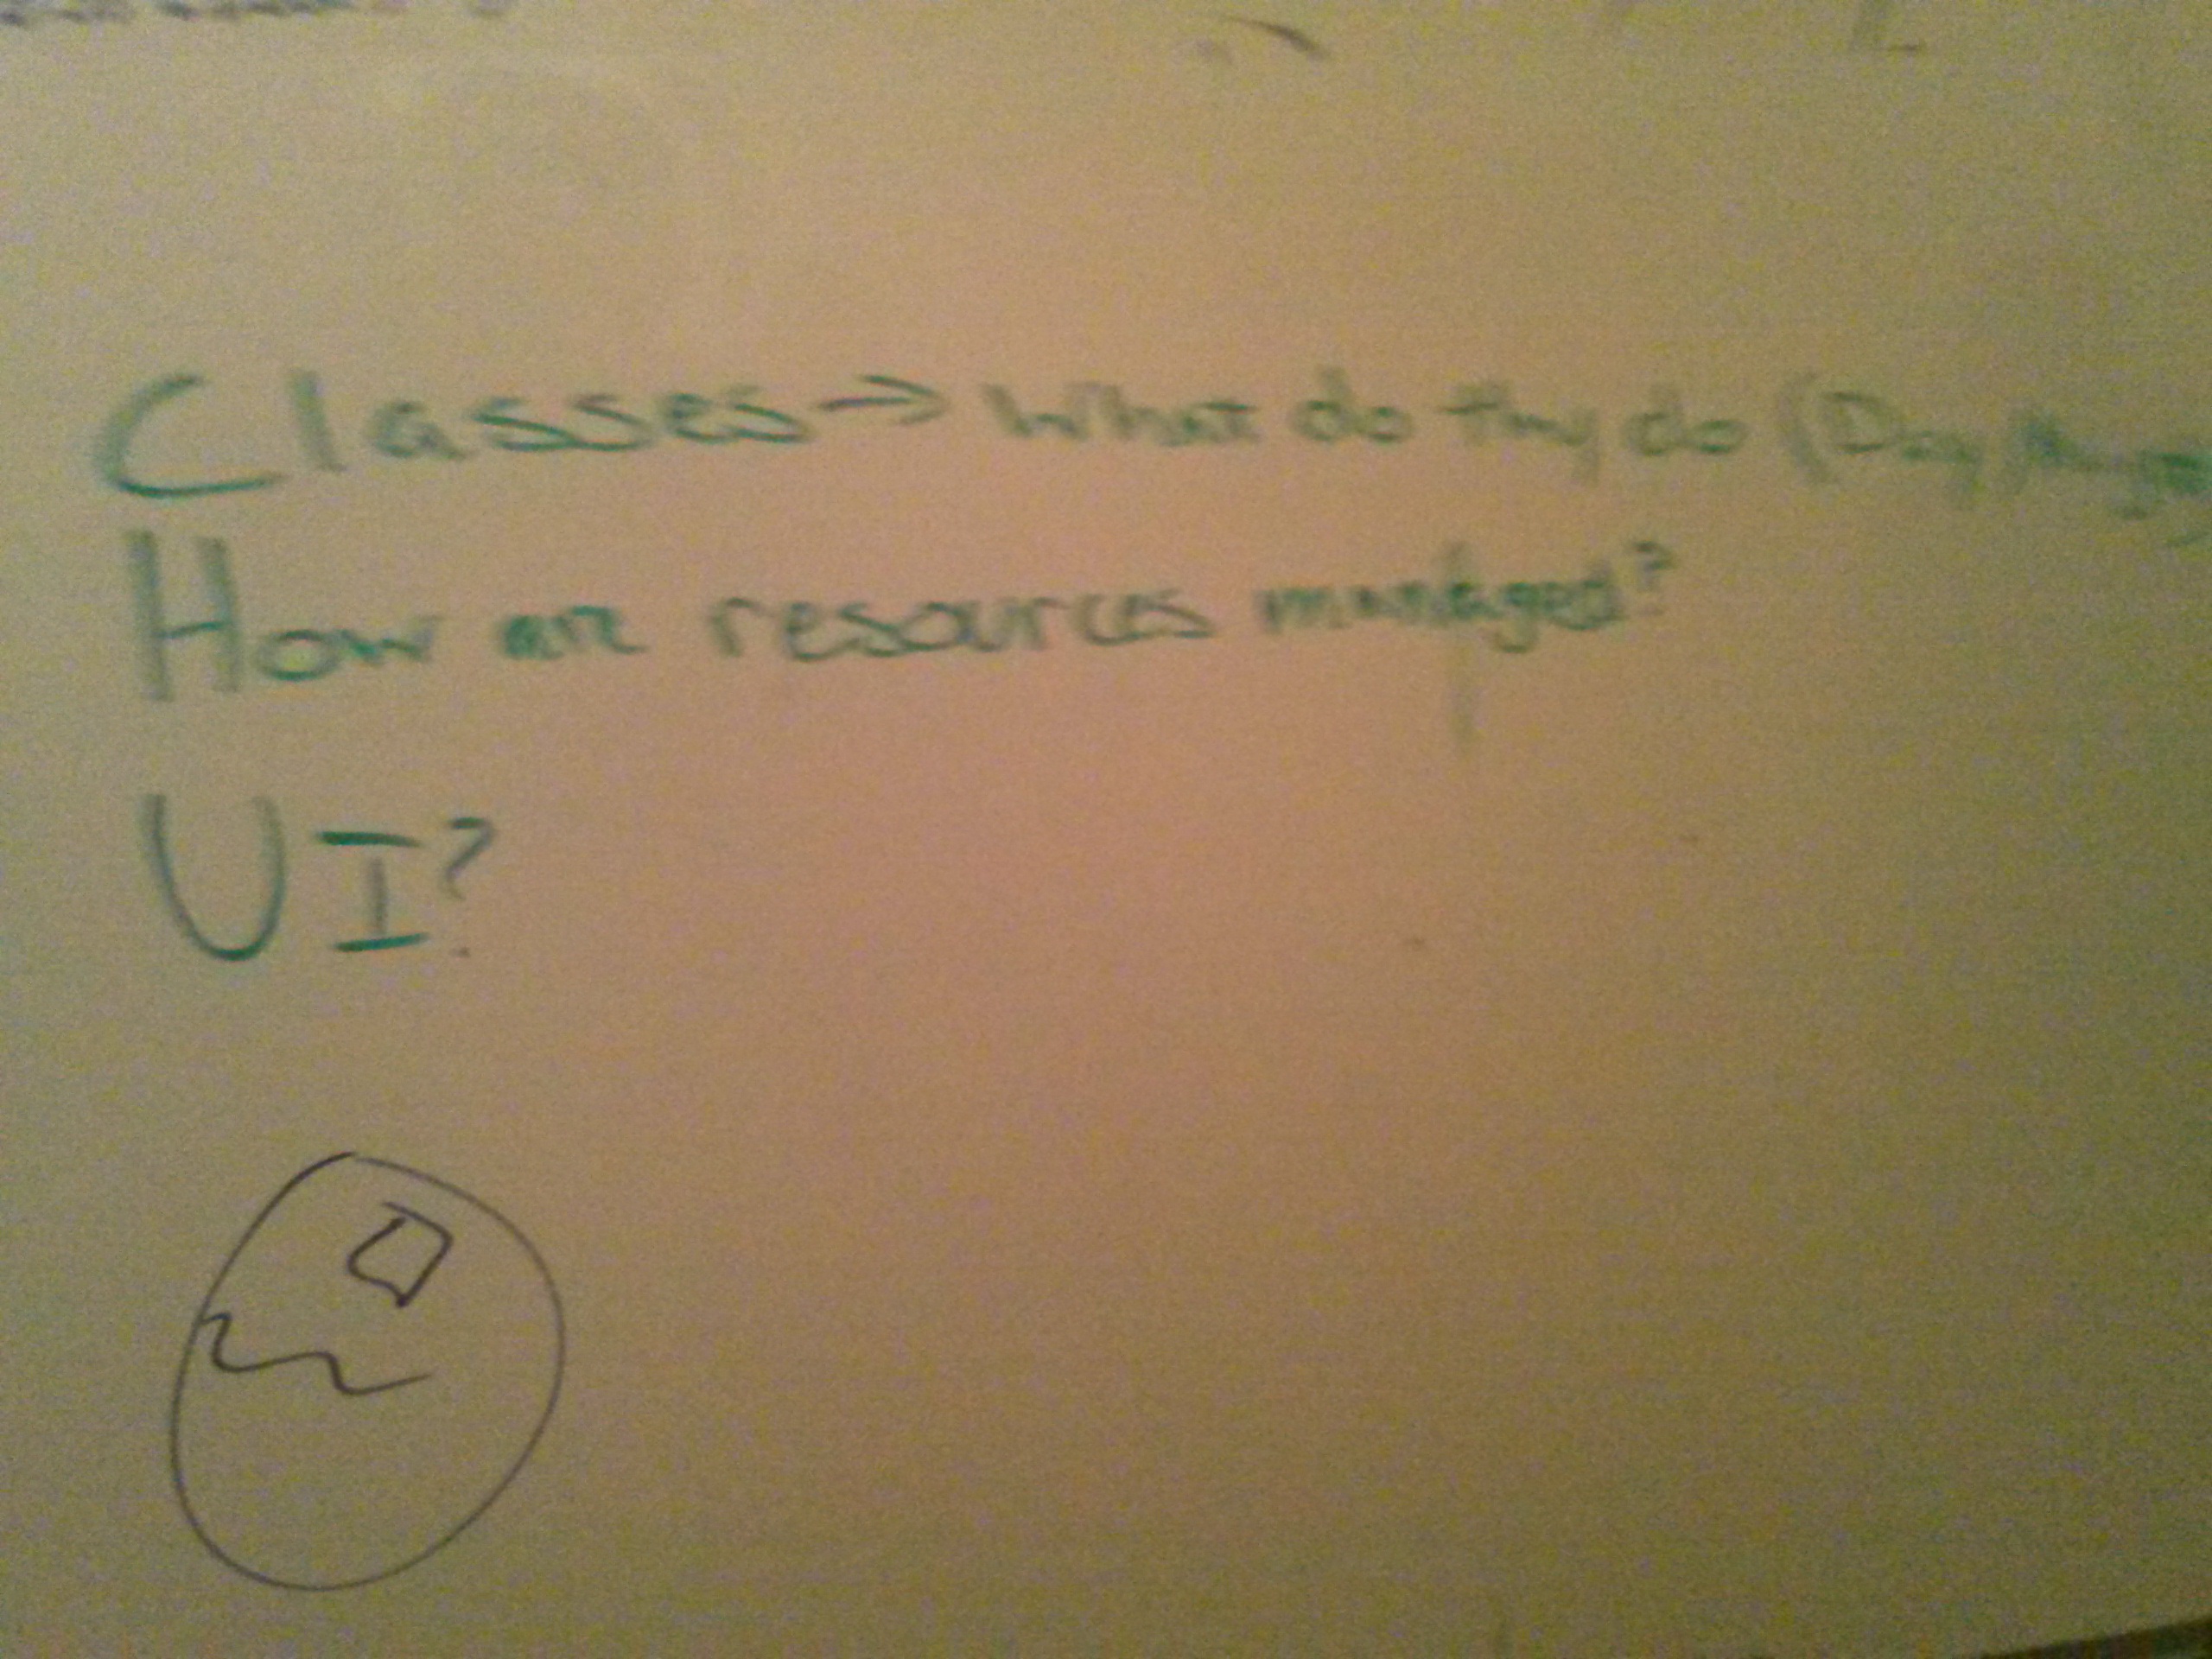 Classes → What do they do (Day
How are resources managed?
UI?